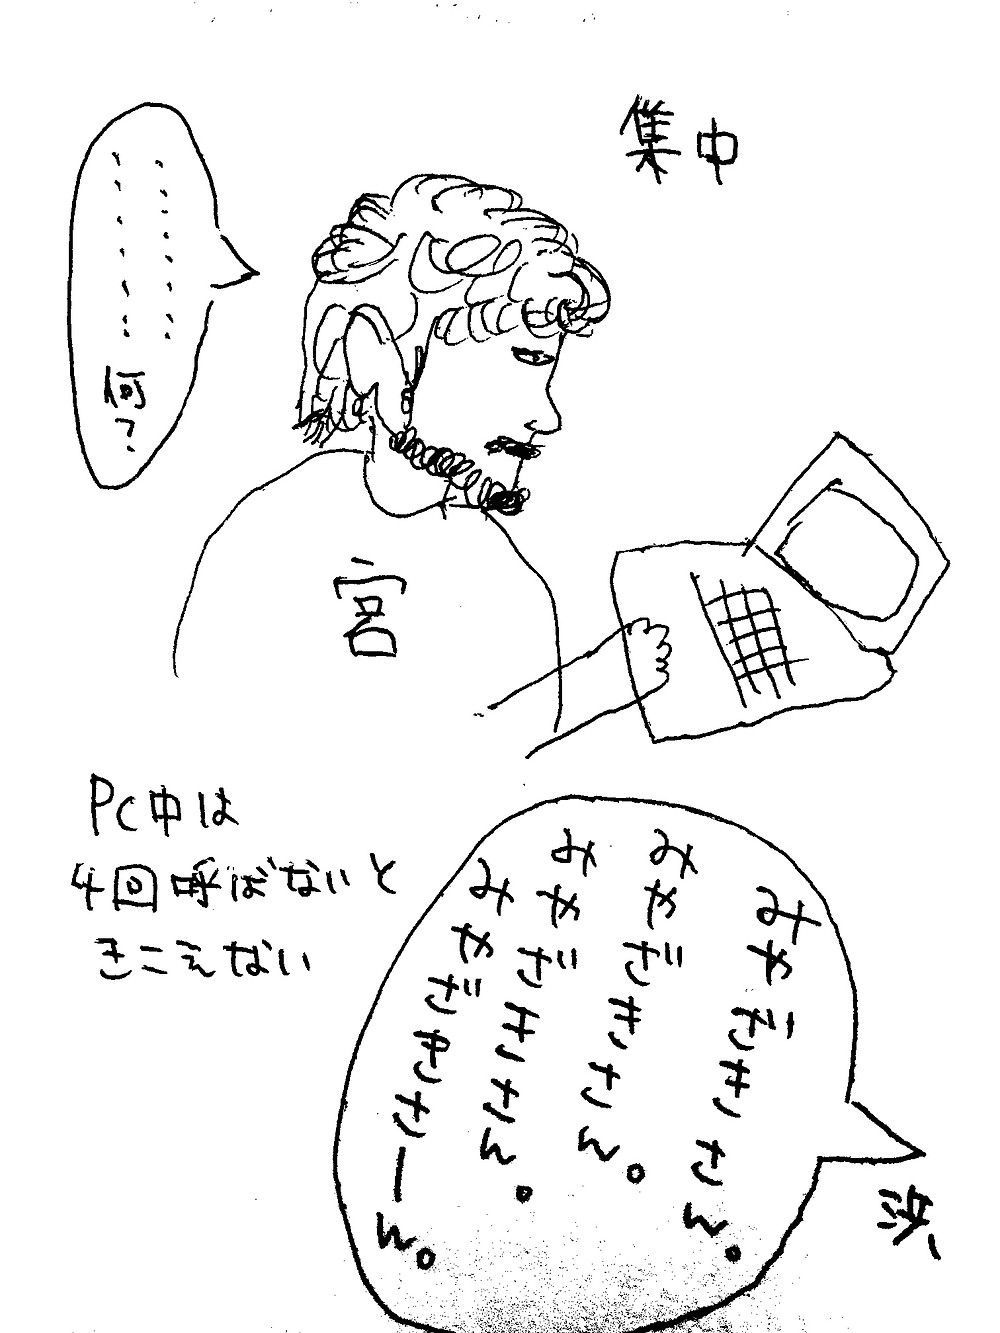 集中
宮
PC中は
4回呼ばないと
きこえない
みやざきさん。
みやざきさん。
みやざきさん。
みやざきさーん。
浜
…………
…………何?